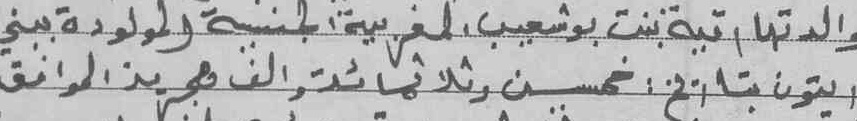 والدتها رقية بنت بوشعيب المغربية الجنسية المولودة ببني
ايتون بتاريخ: خمسين وثلاثمائة والف هجرية الموافق